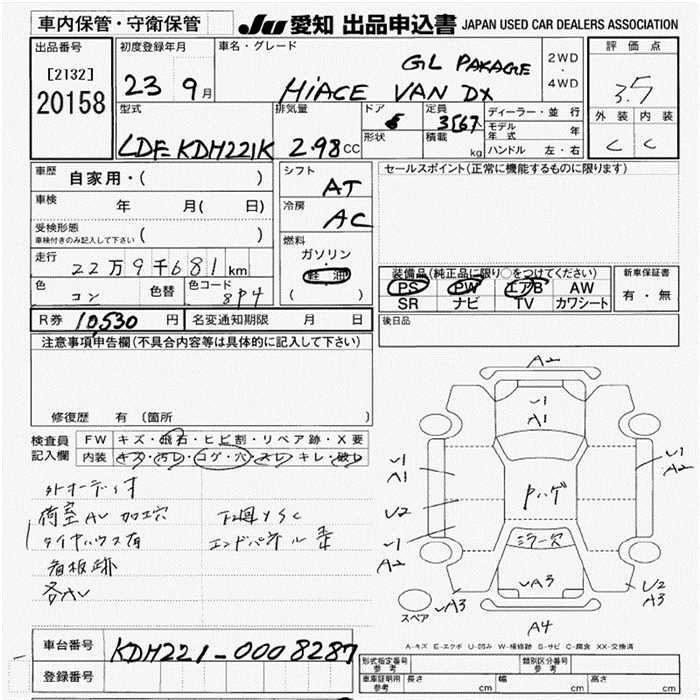 車内保管・守衛保管
JU 愛知 出品申込書 JAPAN USED CAR DEALERS ASSOCIATION
出品番号
[2132]
20158
初度登録年月
23 9月
車名・グレード
GL PAKAGE
HIACE VAN DX
2WD
・
4WD
評価点
3.5
外装 内装
C C
型式
LDF-KDH221K
排気量
2.98CC
ドア
5
形状
定員
3567
積載
kg
ディーラー・並行
モデル年式 年
ハンドル 左・右
車歴
自家用・( )
車検
年 月( 日)
受検形態
車検付きのみ記入して下さい ( )
走行
22万9千681km
色
コン
色替
色コード
8P4
シフト
AT
冷房
AC
燃料
ガソリン
軽油
( )
セールスポイント(正常に機能するものに限ります)
装備品(純正品に限り○をつけてください)
PS PW エアB AW
SR ナビ TV カワシート
新車保証書
有・無
R券 10,530円
名変通知期限 月 日
後日品
注意事項申告欄(不具合内容等は具体的に記入して下さい)
修復歴 有 〔箇所
検査員
記入欄
FW キズ・飛石・ヒビ割・リペア跡・X要
内装 キズ・汚レ・コゲ・穴・スレ・キレ・破レ
外オーディオ
荷室AU 加工穴
下廻りSC
タイヤハウス有
エンドパネル
看板跡
各AU
A2
U1
A1
U1
A1
U2
U1
A2
U1
A2
Pハゲ
ミラー欠
UA3
UA3
U2
A3
A4
スペア
A-キズ E-エクボ U-凹み W-補修跡 S-サビ C-腐食 XX-交換済
車台番号
KDH221-0008287
登録番号
型式指定番号
参考
類別区分番号
参考
車庫証明用
参考
長さ cm 幅 cm 高さ cm